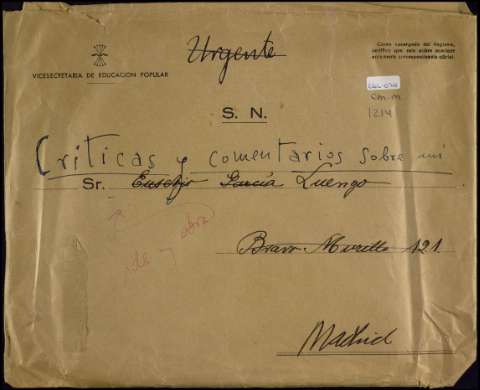 Urgente
Como encargado del Registro,
certifico que este sobre contiene
únicamente correspondencia oficial.
VICESECRETARIA DE EDUCACION POPULAR
Cm-m
1214
S. N.
Críticas y comentarios sobre mi
Sr. Eusebio García Luengo
y obra
Bravo Murillo 121
Madrid